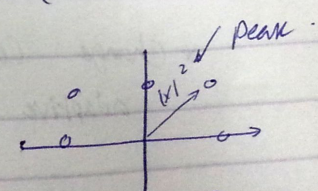 peak.
|x|²